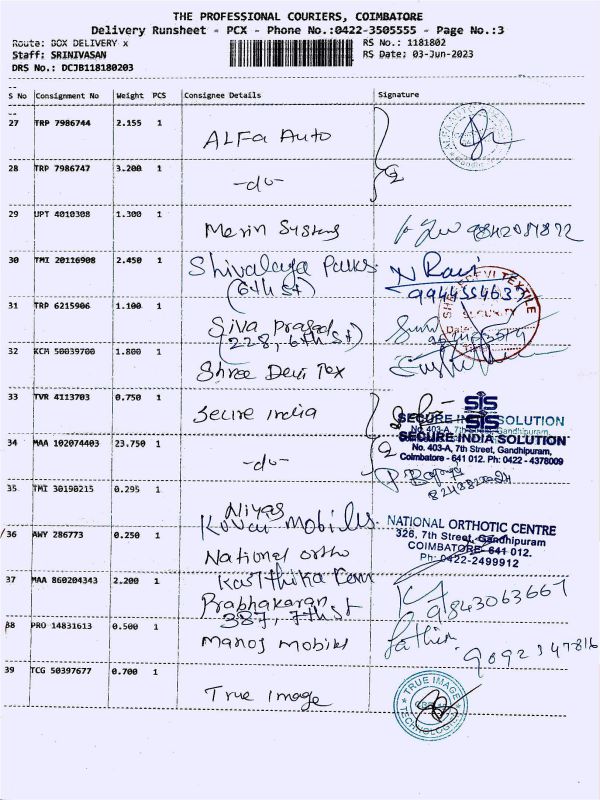 THE PROFESSIONAL COURIERS, COIMBATORE
Delivery Runsheet - PCX - Phone No.:0422-3505555 - Page No.:3
Route: BOX DELIVERY x RS No.: 1181802
Staff: SRINIVASAN RS Date: 03-Jun-2023
DRS No.: DCJB118180203
S No Consignment No Weight PCS Consignee Details Signature
27 TRP 7986744 2.155 1
ALFa Auto
28 TRP 7986747 3.200 1
-do-
29 UPT 4010308 1.300 1
Merin Systems 9842087872
30 TMI 20116908 2.450 1
Shivalaya Parks N Ravi
(6th st) 9944554637
31 TRP 6215906 1.100 1
Siva Prasad
(228, 6th st)
32 KCM 50039700 1.800 1
Shree Devi Tex
SHREE DEVI TEXTILE
SECURITY
Date
33 TVR 4113703 0.750 1
Secure India
SIS
SECURE INDIA SOLUTION
No. 403-A, 7th Street, Gandhipuram,
SIS
SECURE INDIA SOLUTION
No. 403-A, 7th Street, Gandhipuram,
Coimbatore - 641 012. Ph: 0422 - 4378009
34 MAA 102074403 23.750 1
-do-
35 TMI 30190215 0.295 1
Niyas
Kovai Mobiles
36 AWY 286773 0.250 1
National ortho
NATIONAL ORTHOTIC CENTRE
326, 7th Street, Gandhipuram
COIMBATORE- 641 012.
Ph:0422-2499912
37 MAA 860204343 2.200 1
Karthika
Prabhakaran 9843063667
387, 7th st
38 PRO 14831613 0.500 1
Manoj Mobiles 9092347816
39 TCG 50397677 0.700 1
True Image
TRUE IMAGE
TECHNOLOGIES